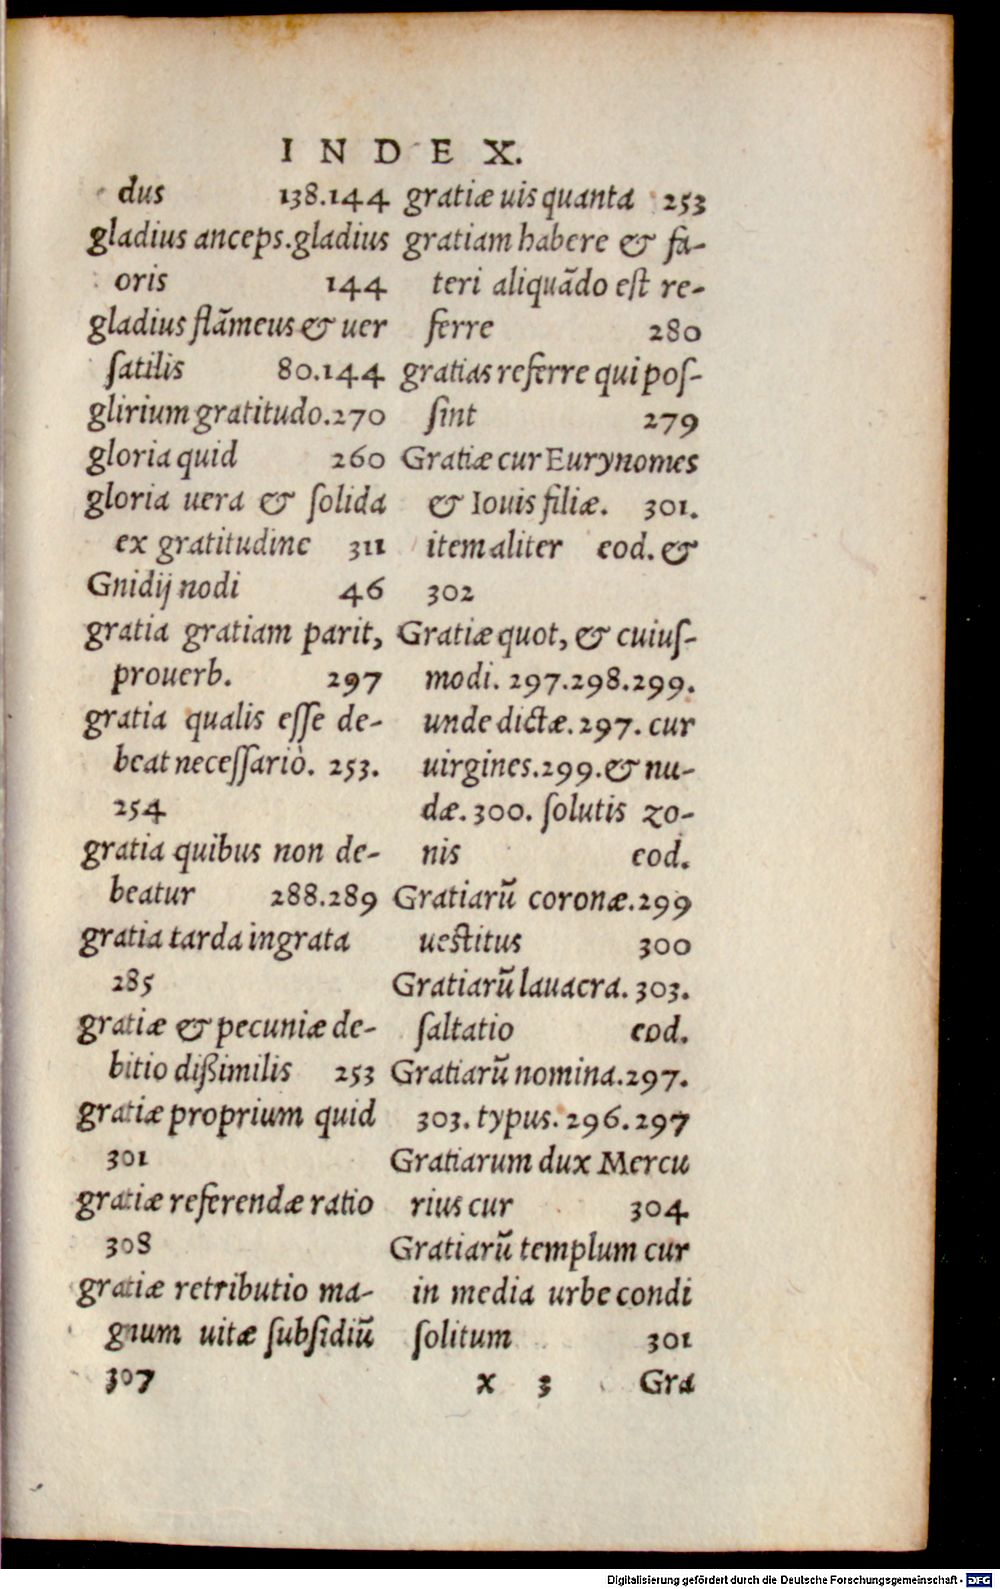 INDEX.
dus 138.144
gladius anceps.gladius
oris 144
gladius flãmeus & uer
ſatilis 80.144
glirium gratitudo.270
gloria quid 260
gloria uera & ſolida
ex gratitudine 311
Gnidij nodi 46
gratia gratiam parit,
prouerb. 297
gratia qualis eſſe de-
beat neceſſariò. 253.
254
gratia quibus non de-
beatur 288.289
gratia tarda ingrata
285
gratiæ & pecuniæ de-
bitio dißimilis 253
gratiæ proprium quid
301
gratiæ referendæ ratio
308
gratiæ retributio ma-
gnum uitæ ſubſidiũ
307
gratiæ uis quanta 253
gratiam habere & fa-
teri aliquãdo eſt re-
ferre 280
gratias referre qui poſ-
ſint 279
Gratiæ cur Eurynomes
& Iouis filiæ. 301.
item aliter eod. &
302
Gratiæ quot, & cuiuſ-
modi. 297.298.299.
unde dictæ. 297. cur
uirgines.299.& nu-
dæ. 300. ſolutis zo-
nis eod.
Gratiarũ coronæ.299
ueſtitus 300
Gratiarũ lauacra. 303.
ſaltatio eod.
Gratiarũ nomina.297.
303. typus. 296.297
Gratiarum dux Mercu
rius cur 304
Gratiarũ templum cur
in media urbe condi
ſolitum 301
x 3 Gra
Digitalisierung gefördert durch die Deutsche Forschungsgemeinschaft - DFG